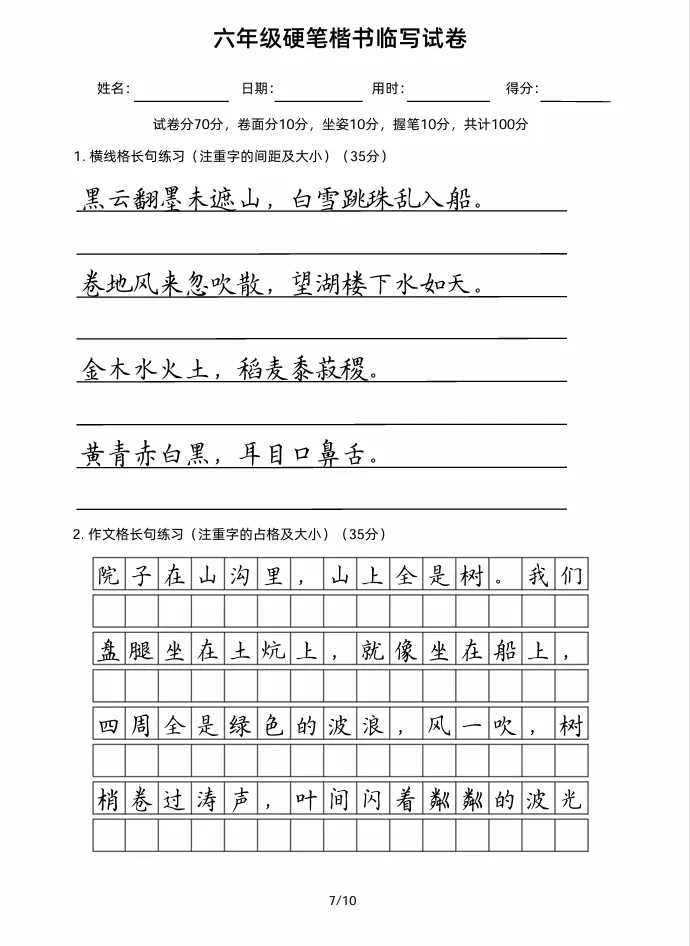 六年级硬笔楷书临写试卷
姓名：
日期：
用时：
得分：
试卷分70分，卷面分10分，坐姿10分，握笔10分，共计100分
1. 横线格长句练习（注重字的间距及大小）（35分）
黑云翻墨未遮山，白雪跳珠乱入船。
卷地风来忽吹散，望湖楼下水如天。
金木水火土，稻麦黍菽稷。
黄青赤白黑，耳目口鼻舌。
2. 作文格长句练习（注重字的占格及大小）（35分）
院子在山沟里，山上全是树。我们
盘腿坐在土炕上，就像坐在船上，
四周全是绿色的波浪，风一吹，树
梢卷过涛声，叶间闪着粼粼的波光
7/10